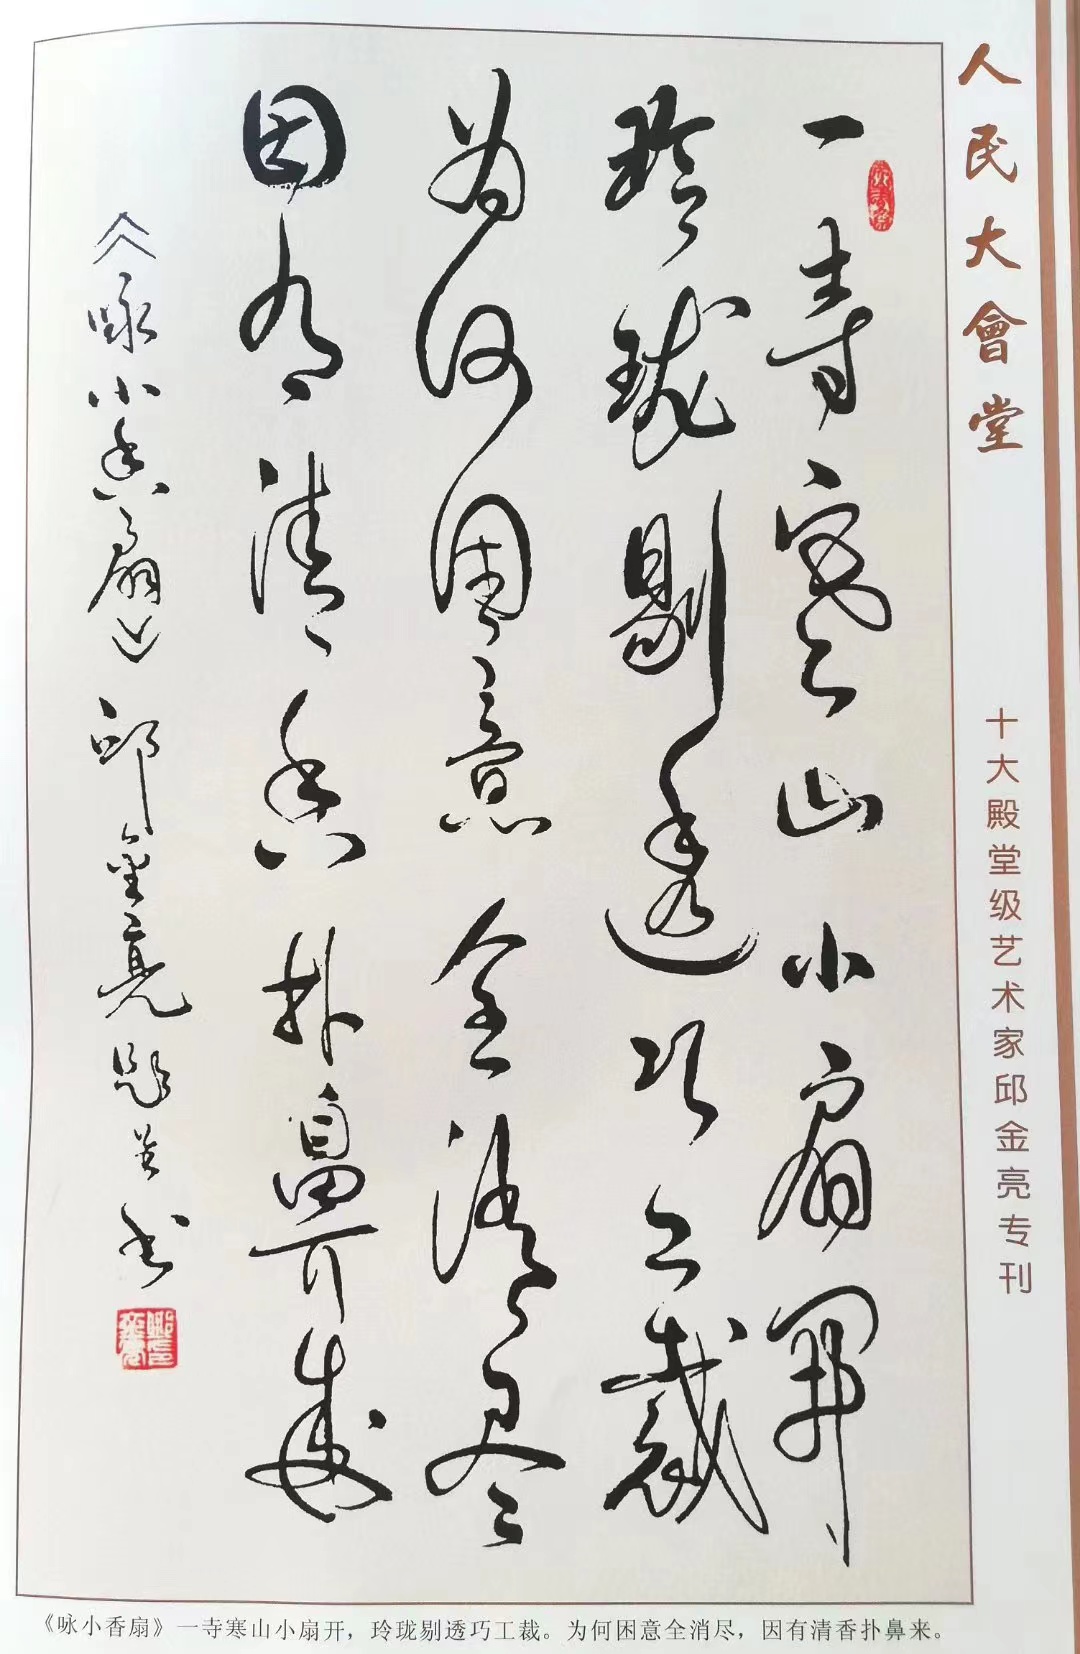 人民大會堂
十大殿堂级艺术家邱金亮专刊
一寺寒山小扇開
玲珑剔透巧工裁
为何困意全消尽
因有清香扑鼻来
《咏小香扇》邱金亮题并书
《咏小香扇》一寺寒山小扇开，玲珑剔透巧工裁。为何困意全消尽，因有清香扑鼻来。